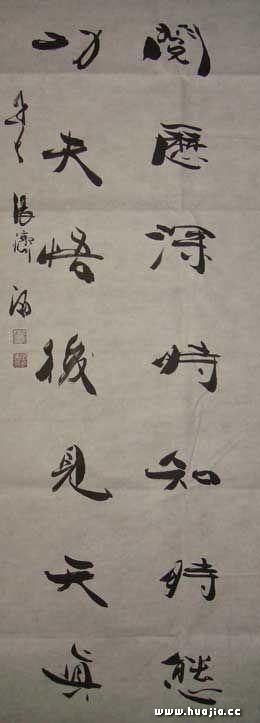 閱歷深時知時態
功夫悟後見天真
www.huajia.cc